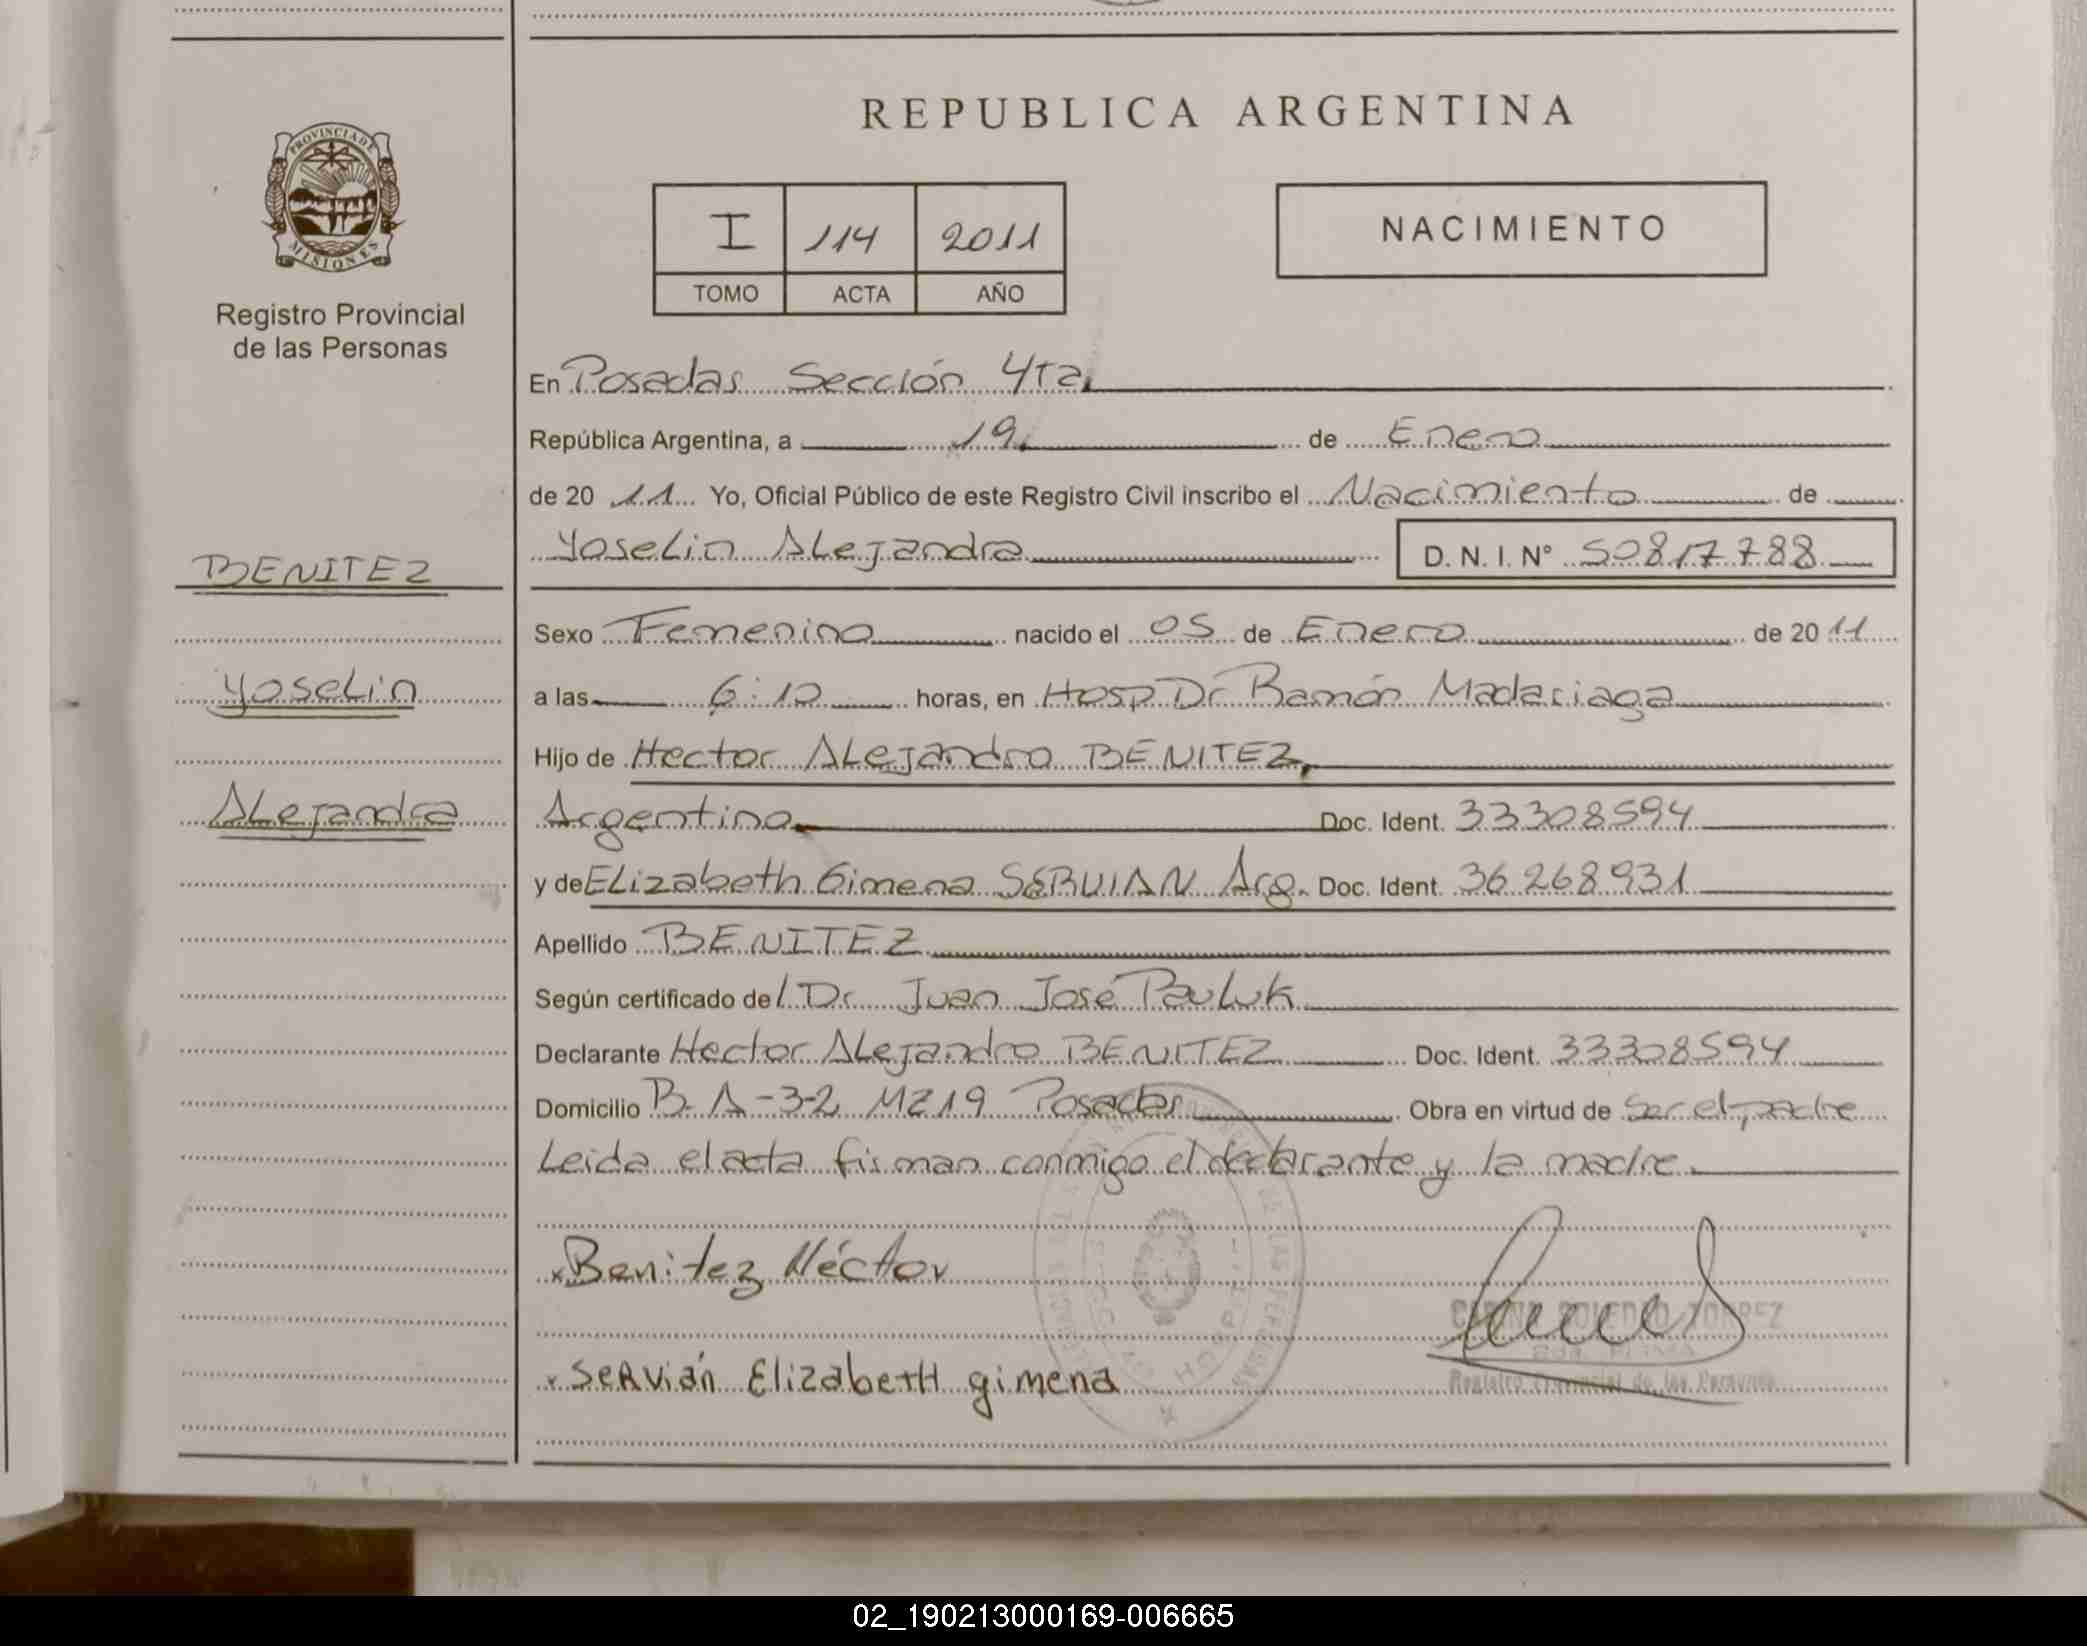 REPUBLICA ARGENTINA
PROVINCIA DE
MISIONES
Registro Provincial
de las Personas
I 114 2011
TOMO ACTA AÑO
NACIMIENTO
BENITEZ
Yoselin
Alejandra
En Posadas Sección 4ta.
República Argentina, a 19 de Enero
de 20 11 Yo, Oficial Público de este Registro Civil inscribo el Nacimiento de
Yoselin Alejandra D. N. I. N° 50817788
Sexo Femenino nacido el 05 de Enero de 20 11
a las 6:10 horas, en Hosp Dr Ramón Madariaga
Hijo de Hector Alejandro BENITEZ,
Argentino Doc. Ident. 33308594
y de Elizabeth Gimena SERVIAN Arg. Doc. Ident. 36268931
Apellido BENITEZ
Según certificado del Dr. Juan José Pauluk
Declarante Hector Alejandro BENITEZ Doc. Ident. 33308594
Domicilio B. A-3-2 MZ19 Posadas Obra en virtud de ser el padre
Leida el acta firman conmigo el declarante y la madre
x Benitez Héctor
Registro Provincial de las Personas
x Servián Elizabeth gimena
02_190213000169-006665